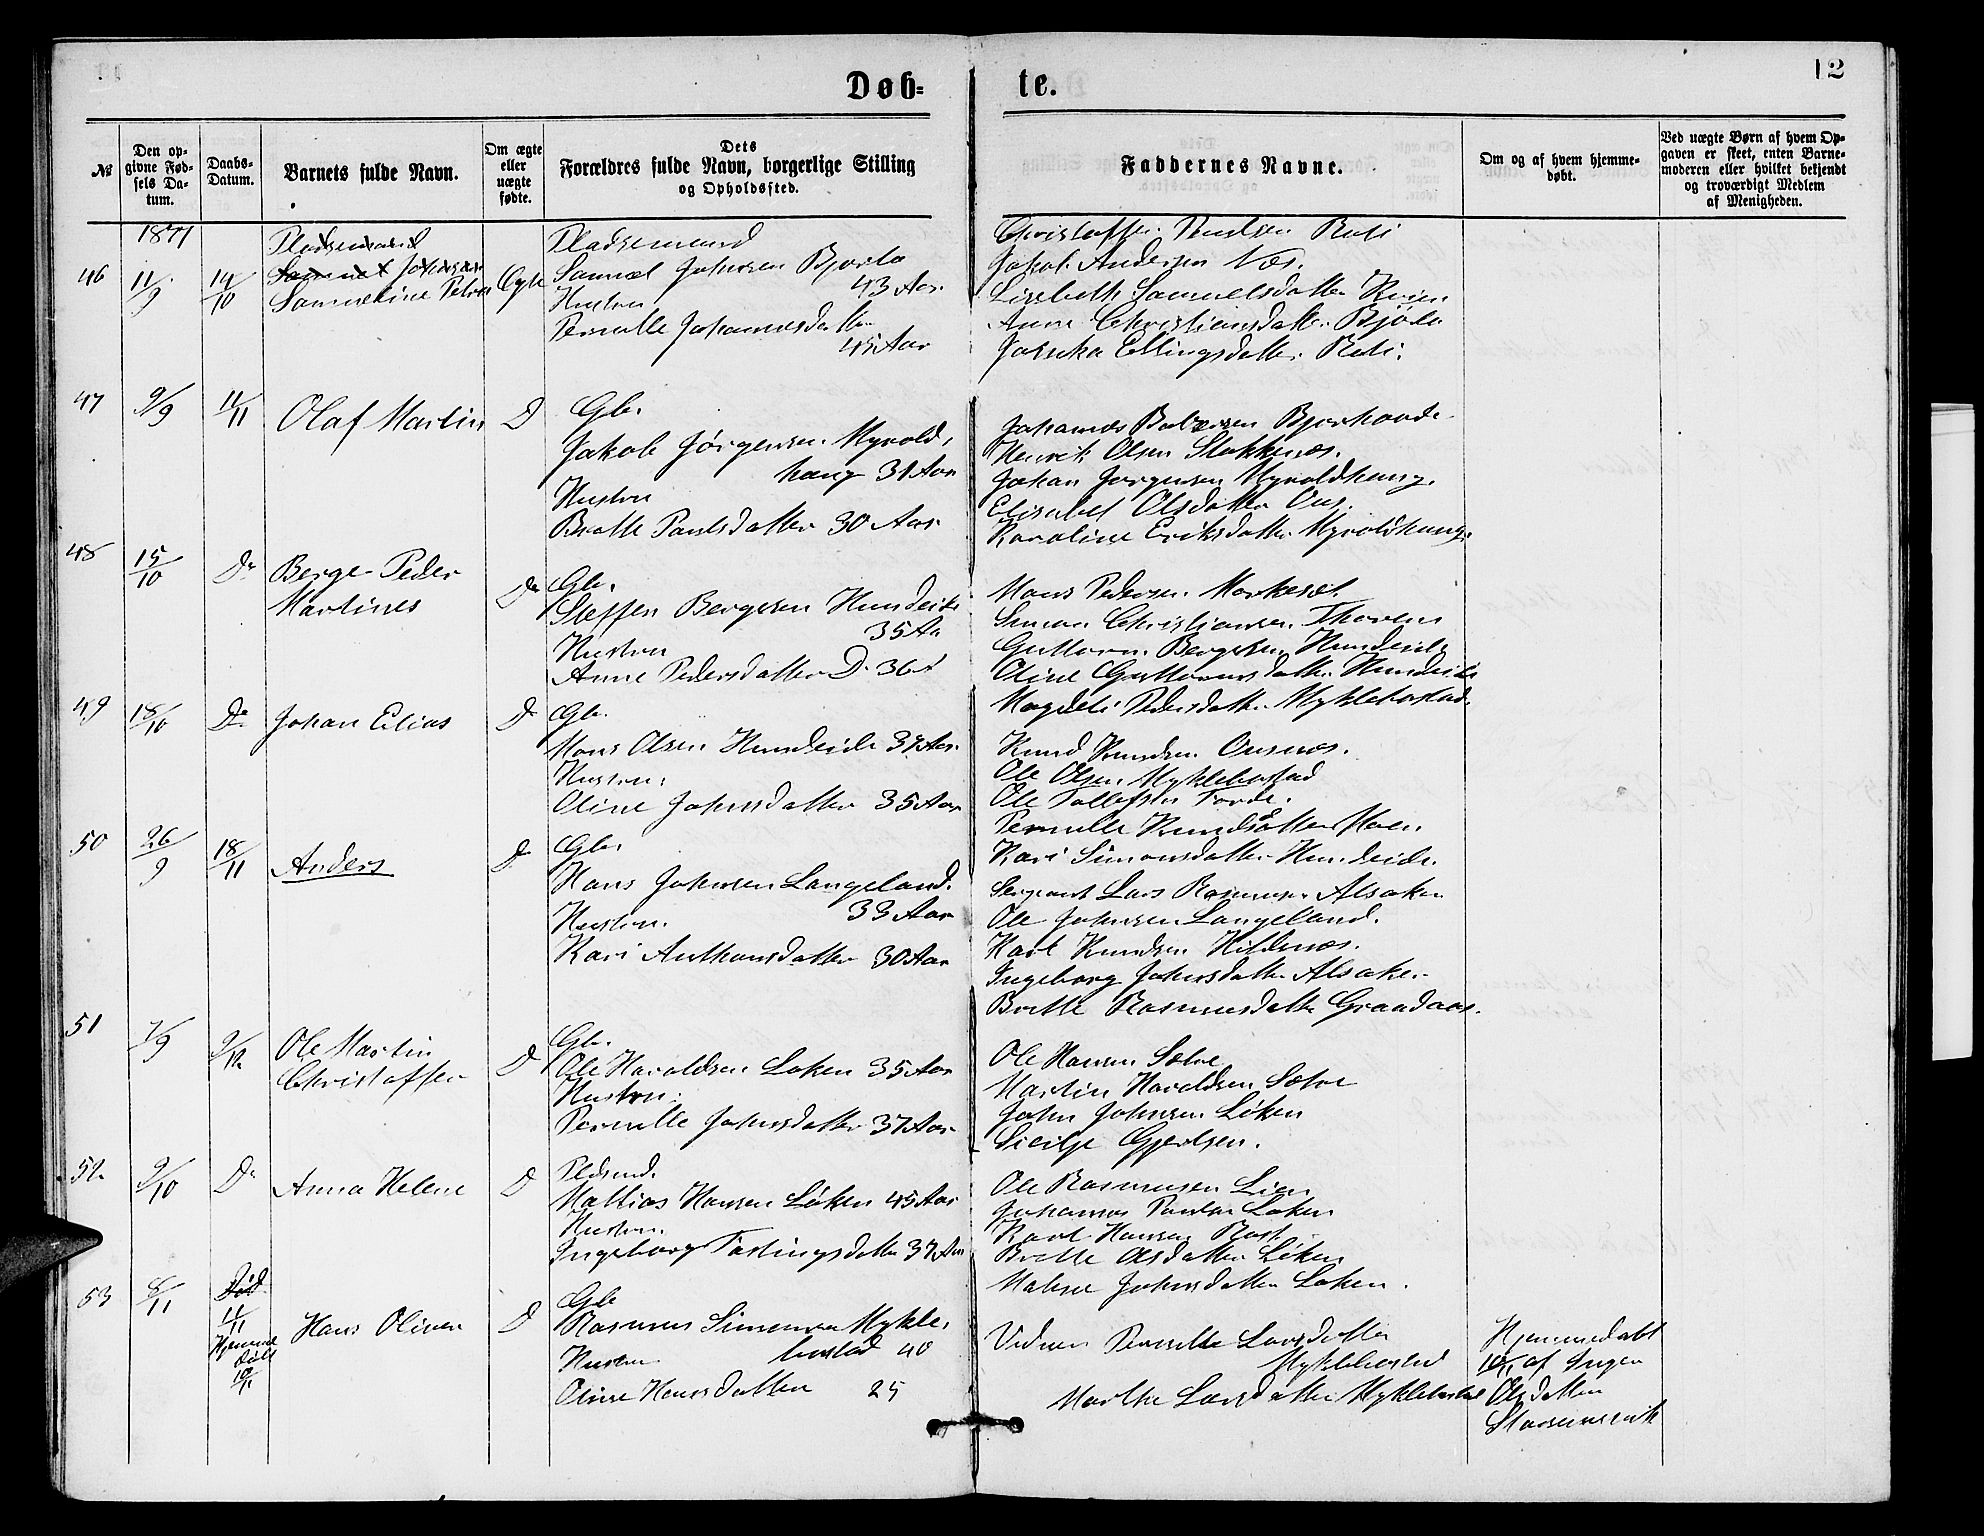 Døb-
te.
12
№
Den op-
givne Fød-
sels Da-
tum.
Daabs-
Datum.
Barnets fulde Navn.
Om ægte
eller
uægte
fødte.
Dets
Forældres fulde Navn, borgerlige Stilling
og Opholdssted.
Faddernes Navne.
Om og af hvem hjemme-
døbt.
Ved uægte Børn af hvem Op-
gaven er skeet, enten Barne-
moderen eller hvilket bekjendt
og troværdigt Medlem
af Menigheden.
1871
46
11/9
14/10
Pladsemand
Samuel Johnsen
Samueline Petrea
Ægte
Pladsemand
Samuel Johnsen Bjorlo
43 Aar
Hustru
Pernille Johannesdatter
45 Aar
Christoffer Paulsen
Jakob Andersen Næs.
Lisebeth Samuelsdatter
Anne Christiansdatter Bjørlo
Ellingsdatter
47
9/9
11/11
Olaf Martin
D
Gbr.
Jakob Jørgensen Myrold,
haug 31 Aar
Hustru
Brithe Paulsdatter 30 Aar
Johannes
Henrik Olsen Stokkenæs.
Johan Jørgensen Myroldhaug.
Elisabet Olsdatter
Karoline Eriksdatter Myroldhaug.
48
15/10
Do
Berge Peder
Martines
Do
Gbr.
Steffen Bergesen Hundeide
35 Aa
Hustru
Anne Pedersdatter D. 36 A
Mons Pedersen Markeset
Simon Christiansen
Guttorm Bergesen Hundeide
Oline Guttormsdatter Hundeide
Magdeli Pedersdatter Myklebostad.
49
18/10
Do
Johan Elias
D
Gbr.
Mons Olsen Hundeide 37 Aar.
Hustru.
Oline Johnsdatter 35 Aar
Knud Knudsen
Ole Olsen Myklebostad
Ole Tollefsen Førde.
Pernille Knudsdatter Moen
Kari Simonsdatter Hundeide.
50
26/9
18/11
Anders
D
Gbr.
Hans Johnsen Langeland.
33 Aar
Hustru.
Kari Anthonsdatter 30 Aar
Sergeant Lars Rasmusen Alsaker
Ole Johnsen Langeland.
Karl Knudsen Hildenæs.
Ingeborg Johnsdatter Alsaker
Brithe Rasmusdatter Graadaas.
51
7/9
9/12
Ole Martin
Christoffer
D
Gbr.
Ole Haraldsen Løken 35 Aar
Hustru.
Pernille Johnsdatter 37 Aar
Ole Hansen Sætre
Martin Haraldsen Sætre
John Johnsen Løken
Sicilje Gjertsen.
52
9/10
Do
Anna Helene
D
Pldsmd.
Mathias Hansen Løken 45 Aar
Hustru.
Ingeborg Fastingsdatter 37 Aar
Ole Rasmussen Lien
Johannes Paulsen Løken
Karl Hansen
Brithe Olsdatter Løken
Malene Johnsdatter Løken.
53
8/11
Død
11/11
Hjemme
døbt
10/11
Hans Oliver
D
Gbr
Rasmus Simonsen Mykle,
bostad 40
Hustru
Oline Hansdatter 25
Vidner Pernille Larsdatter
Myklebostad
Marthe Larsdatter Myklebostad
Hjemmedøbt
10/11 af Inger
Olsdatter